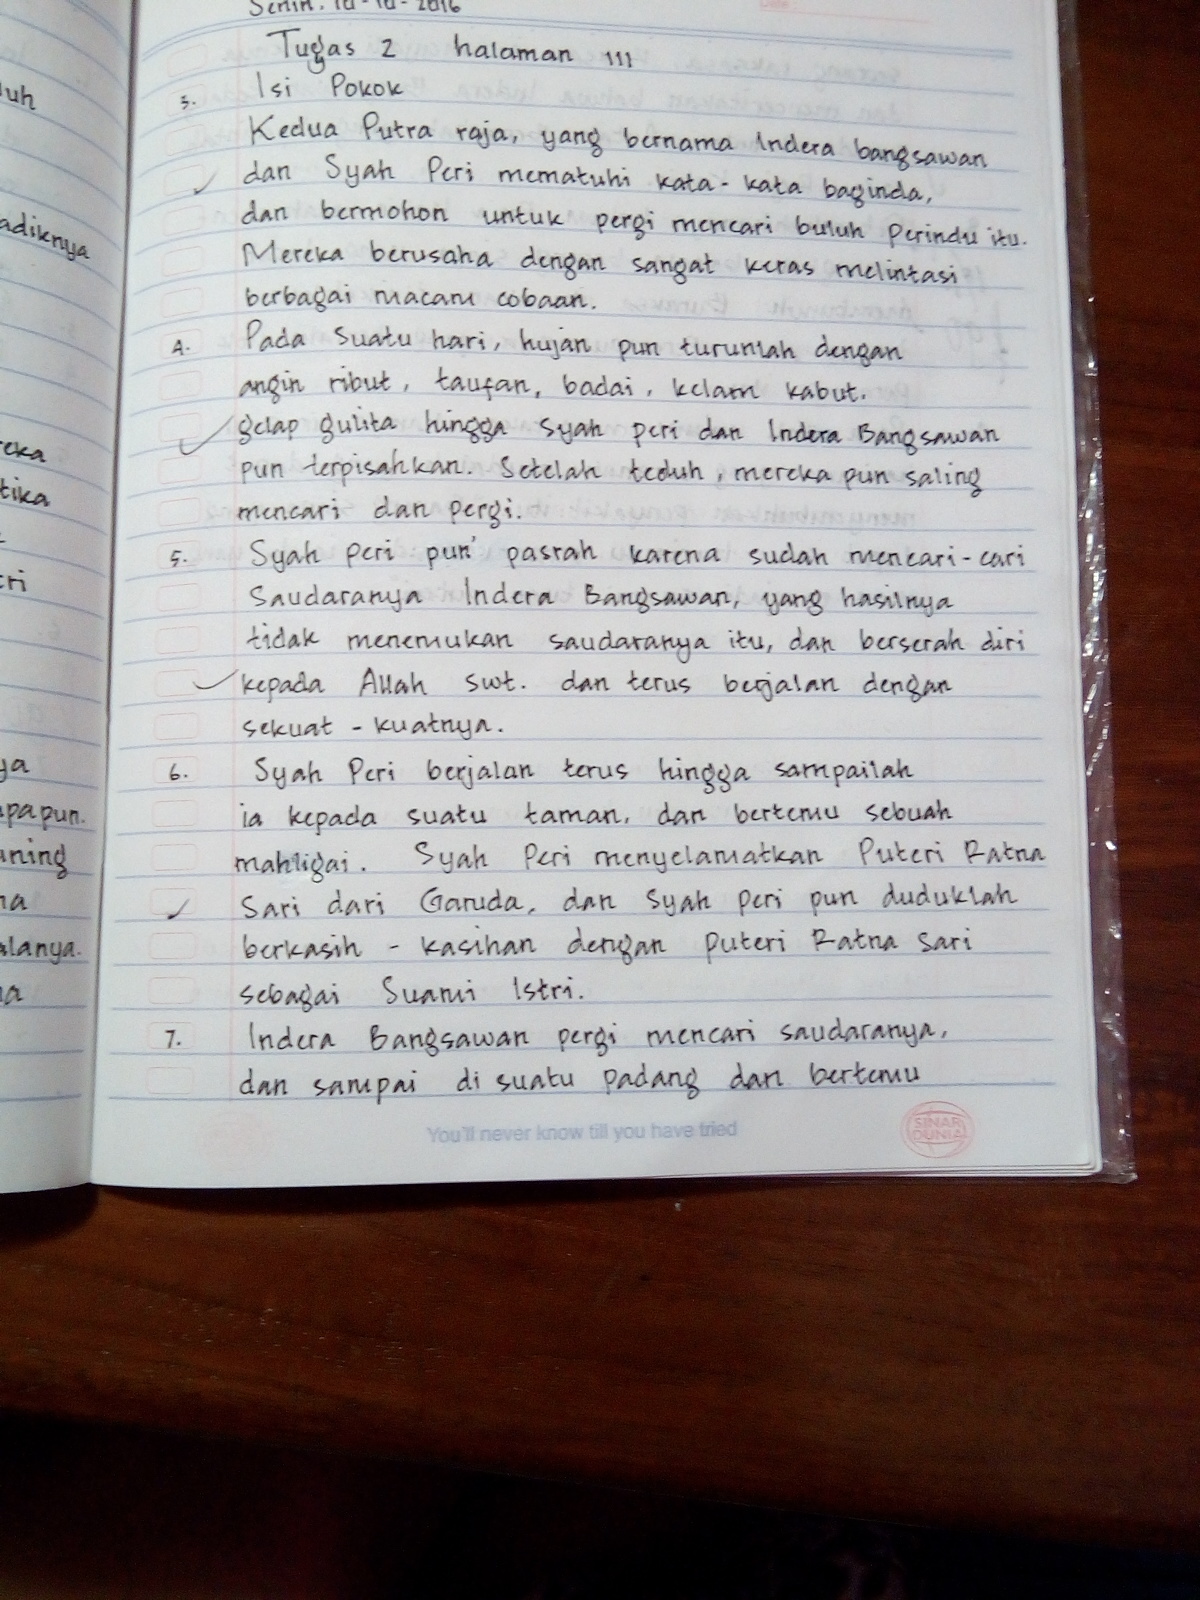 Senin, 10-10-2016
Tugas 2 halaman 111
3. Isi Pokok
Kedua Putra raja, yang bernama Indera bangsawan
dan Syah Peri mematuhi kata-kata baginda,
dan bermohon untuk pergi mencari buluh perindu itu.
Mereka berusaha dengan sangat keras melintasi
berbagai macam cobaan.
4. Pada suatu hari, hujan pun turunlah dengan
angin ribut, taufan, badai, kelam kabut.
gelap gulita hingga Syah peri dan Indera Bangsawan
pun terpisahkan. Setelah teduh, mereka pun saling
mencari dan pergi.
5. Syah peri pun pasrah karena sudah mencari-cari
Saudaranya Indera Bangsawan, yang hasilnya
tidak menemukan saudaranya itu, dan berserah diri
kepada Allah swt. dan terus berjalan dengan
sekuat - kuatnya.
6. Syah Peri berjalan terus hingga sampailah
ia kepada suatu taman, dan bertemu sebuah
mahligai. Syah Peri menyelamatkan Puteri Ratna
Sari dari Garuda, dan Syah peri pun duduklah
berkasih - kasihan dengan puteri Ratna sari
sebagai Suami Istri.
7. Indera Bangsawan pergi mencari saudaranya,
dan sampai di suatu padang dan bertemu
You'll never know till you have tried
SINAR
DUNIA
uh
adiknya
eka
tika
ri
ya
apapun.
uning
na
alanya.
a